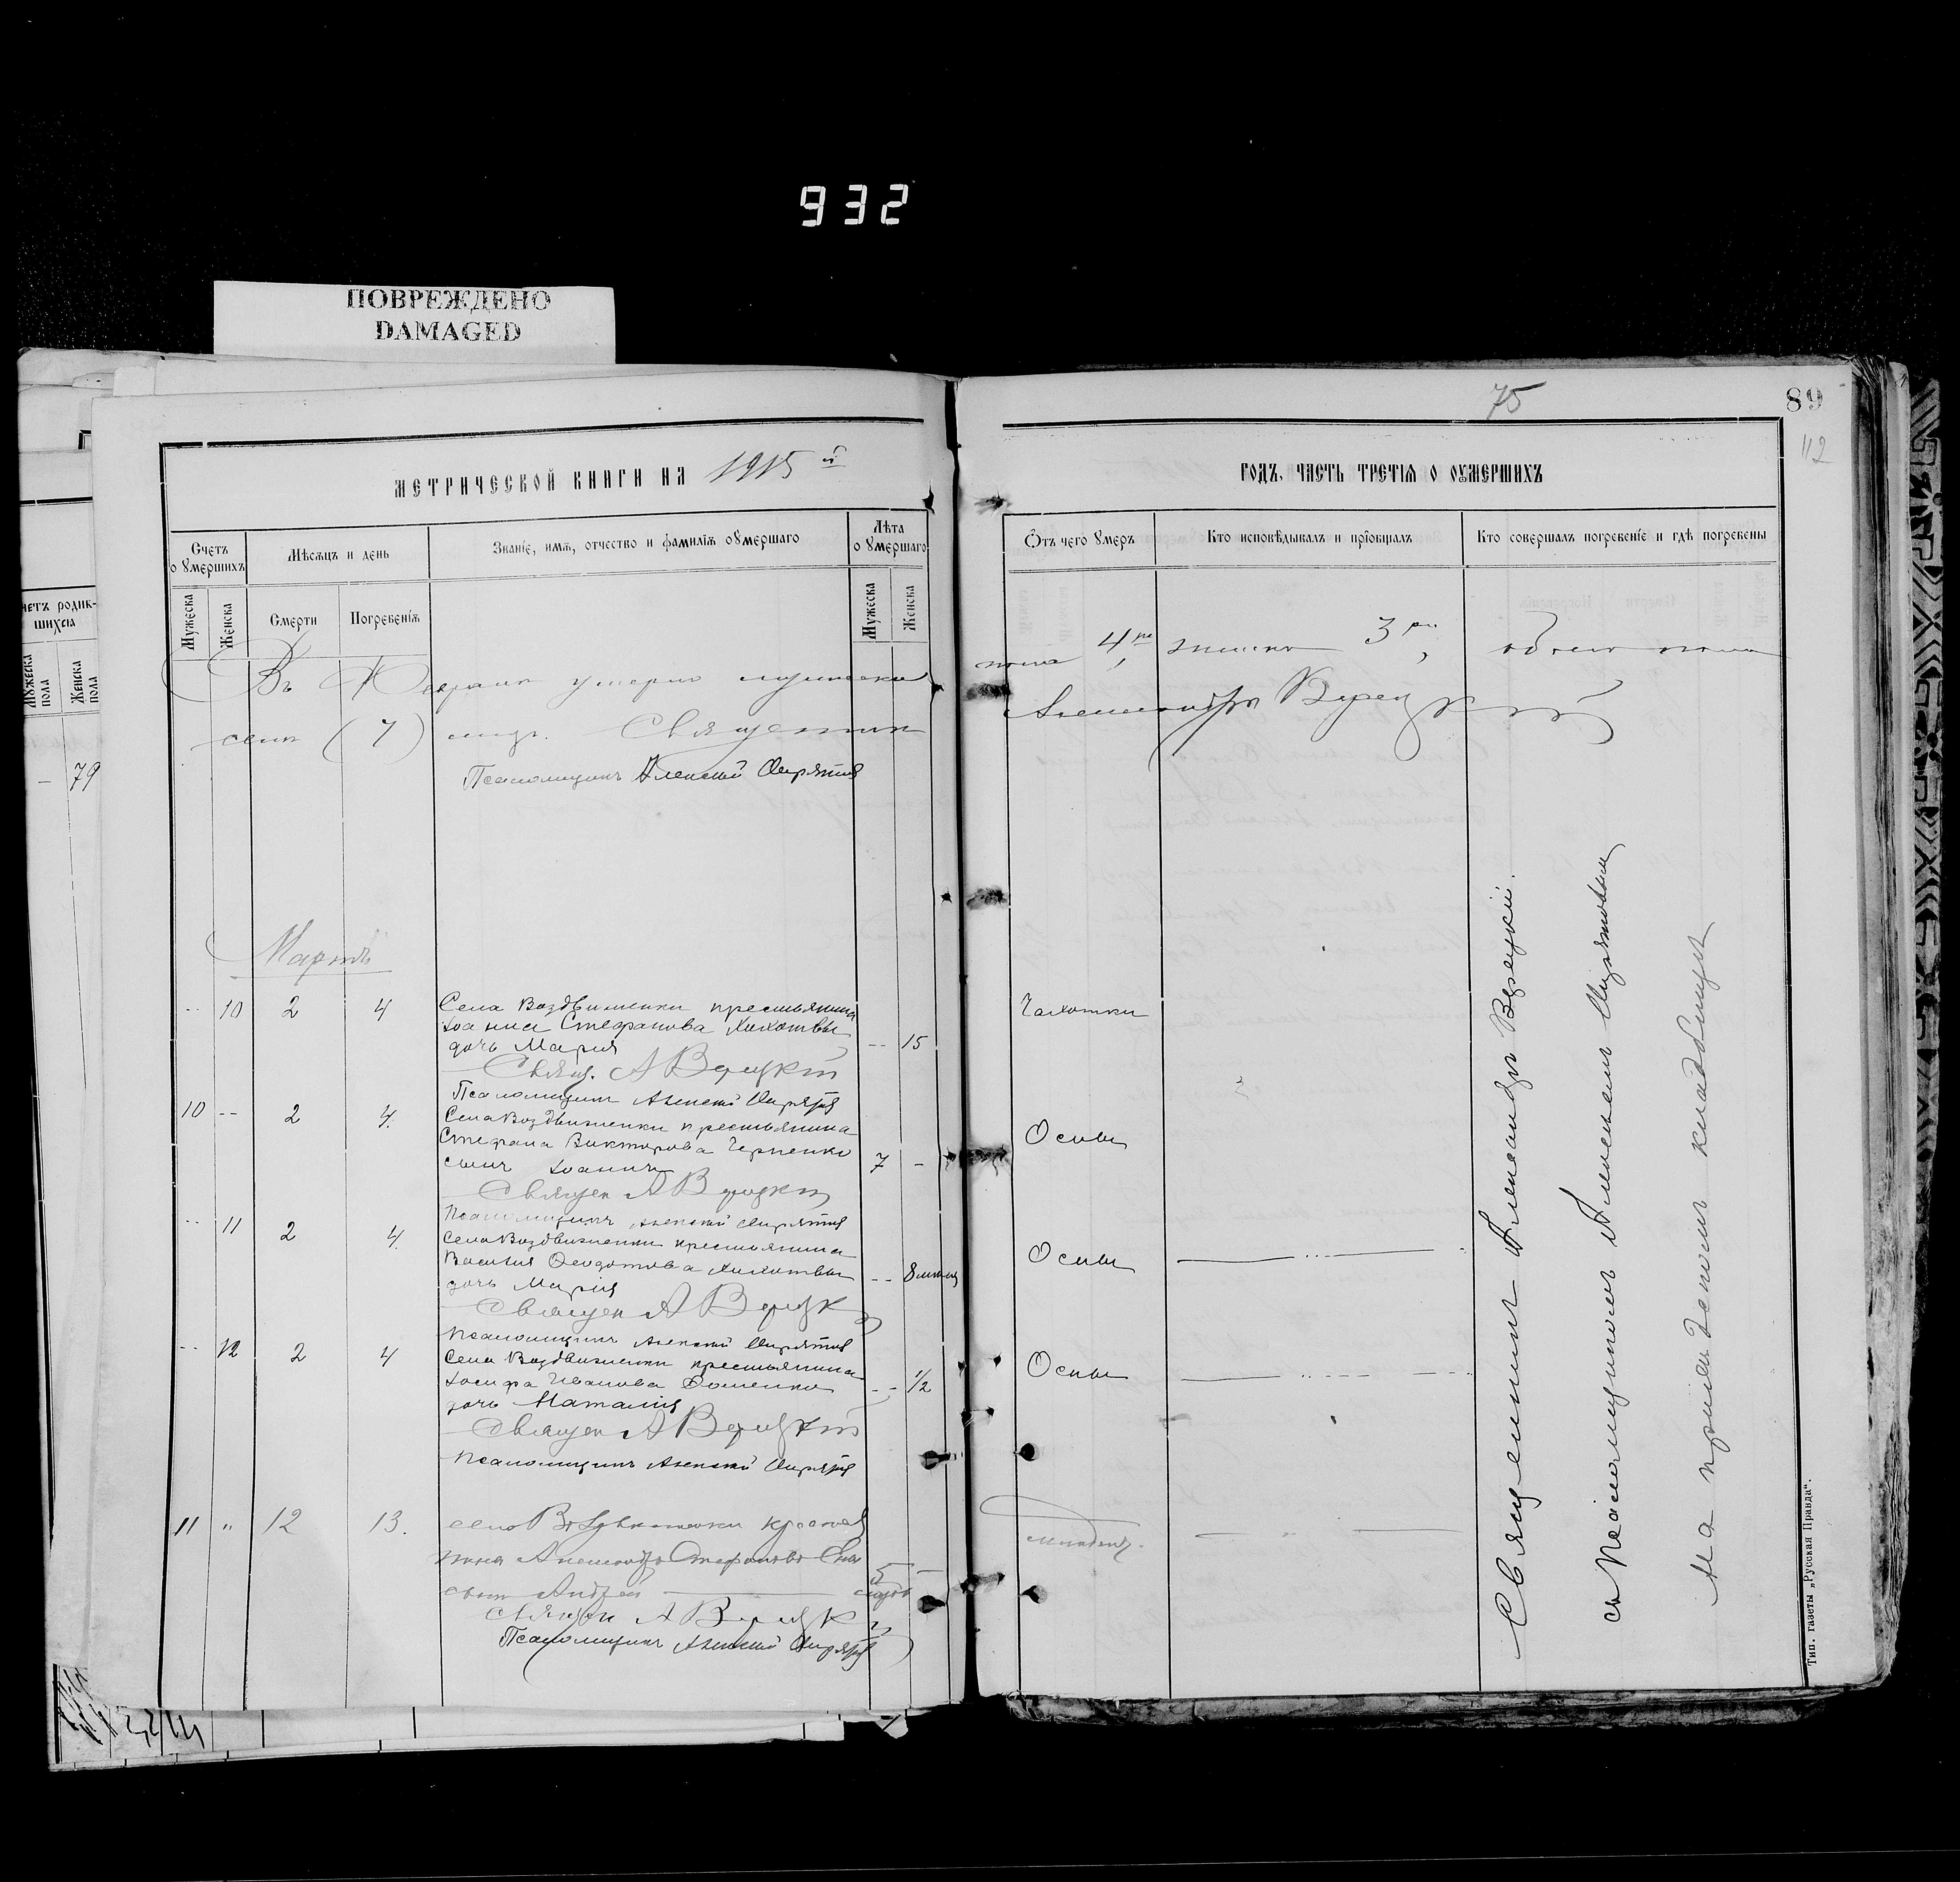 932
ПОВРЕЖДЕНО
DAMAGED
75
89
112
МЕТРИЧЕСКОЙ КНИГИ НА 1915 й
ГОДЪ, ЧАСТЬ ТРЕТІЯ О ОУМЕРШИХЪ
Счетъ о умершихъ
Мѣсяцъ и день
Званіе, имя, отчество и фамилія оумершаго
Лѣта о умершаго
Мужеска
Женска
Смерти
Погребенія
Мужеска
Женска
Отъ чего умеръ
Кто исповѣдывалъ и пріобщалъ
Кто совершалъ погребеніе и гдѣ погребены
четъ родив-
шихся
Мужеска пола
Женска пола
79
Въ Февралѣ умерло мужеска
пола 4ре, женска 3ри, обоего пола
семь (7) Священник
Александръ Верецкій
Псаломщикъ Алексѣй
Мартъ
10 2 4 Села Воздвиженки крестьянина
Іоанна Стефанова
дочь Марія 15 Чахотки
Свящ. А Верецкій
Псаломщикъ Алексѣй
10 2 4. Села Воздвиженки крестьянина
Стефана Викторова Черненко
сынъ Іоаннъ 7 Оспы
Священ А Верецкій
Псаломщикъ Алексѣй
11 2 4. Села Воздвиженки крестьянина
Василія Ѳеодотова
дочь Марія 8 Оспы
Священ А Верецк
Псаломщикъ Алексѣй
12 2 4 Села Воздвиженки крестьянина
Іосифа Иванова
дочь Наталія 1/2 Оспы
Священ А Верецкій
Псаломщикъ Алексѣй
11 " 12 13. села Воздвиженки крестья
нина Александра Стефанова
сынъ Андрей 5
Священ А Верецк
Псаломщикъ Алексѣй
Священникъ Александръ Верецкій.
съ Псаломщикомъ Алексѣемъ
на приходскомъ кладбищѣ
Тип. газеты „Русская Правда“.